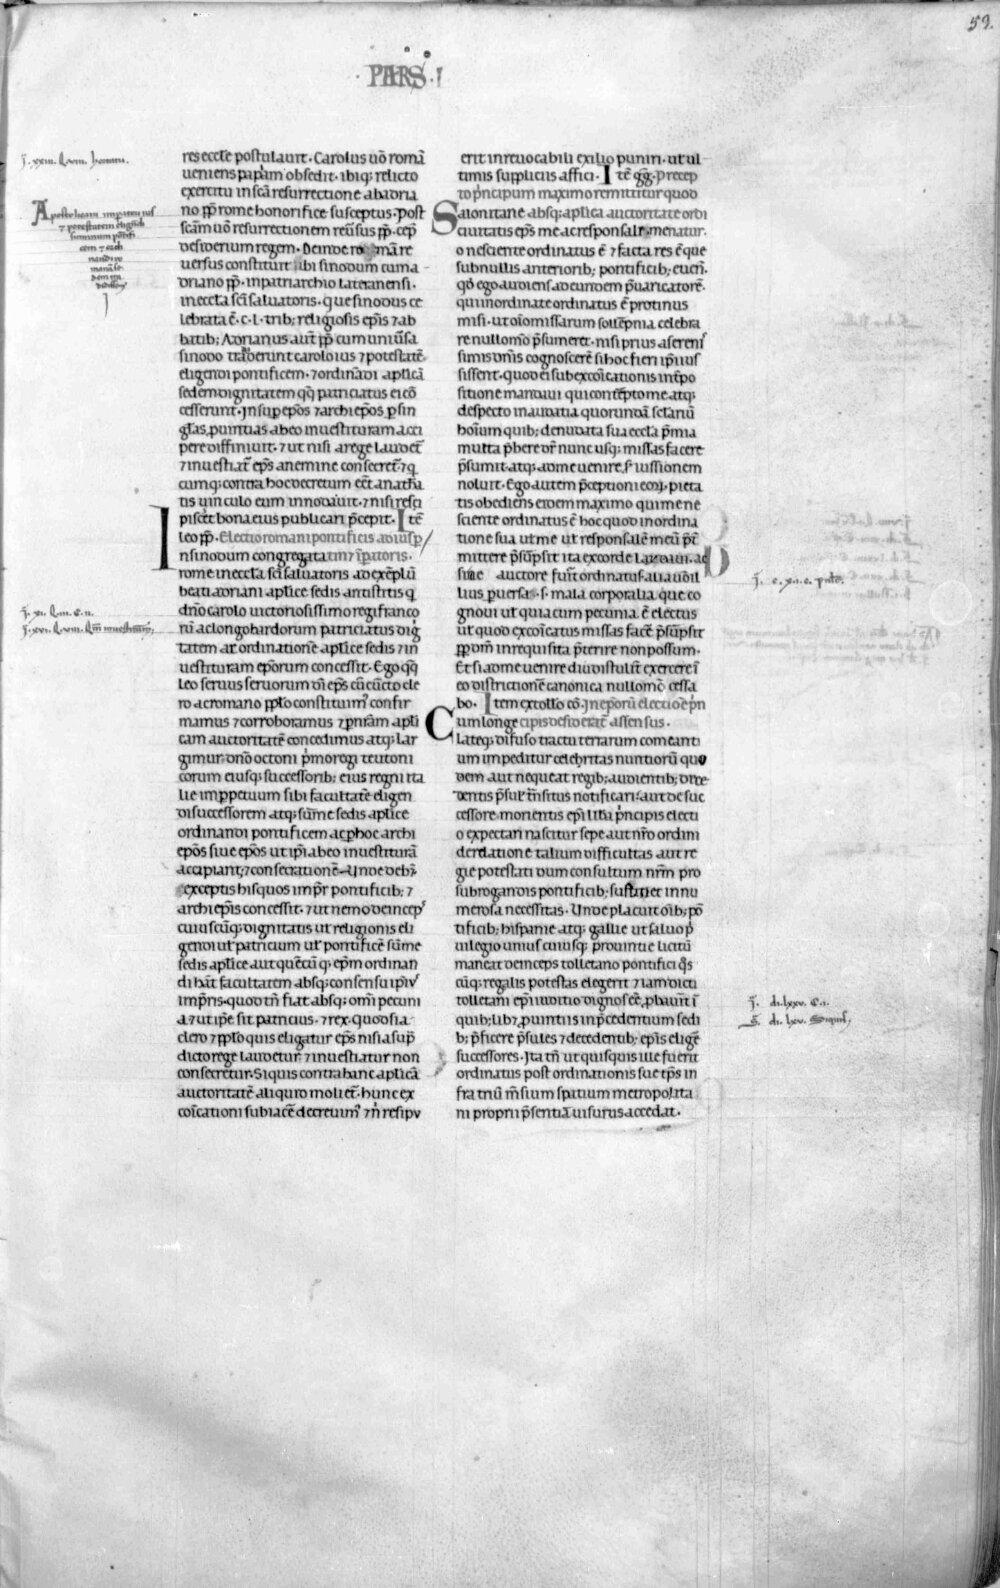 59.
PARS · I
res eccl̄e postulaurt · Carolus uō romā
ueniens papam obsedit · ibiq; relicto
exercitu in scā resurrectione ab adria
no pp̄ rome honorifice susceptus · post
scām uō resurrectionem reūsus pp̄ · cep̄
desiderium regem · Deinde romām re
uersus constituit ibi sinodum cum a
driano pp̄ · in patriarchio lateranensi ·
in eccl̄a sc̄i saluatoris · que sinodus ce
lebrata ē · c · l · trib; religiosis ep̄is ⁊ ab
batib; Adrianus aut̄ pp̄ cum uniūsa
sinodo tradiderunt carolo ius ⁊ potestatē
eligendi pontificem · ⁊ ordinādi aplicā
sedem dignitatem qq̄ patriciatus ei cō
cesserunt · Insup ep̄os ⁊ archiep̄os p sin
glas puintias ab eo inuestituram acci
pere diffiniuit · ⁊ ut nisi a rege laudet̄
⁊ inuestiat̄ ep̄s a nemine consecret̄ · ⁊ q
cumq; contra hoc decretum eēt anathe
tis uinculo eum innodauit · ⁊ nisi resci
pisceret bona eius publicari p̄cepit · Itē
leo pp̄ · Electio romani pontificis ad ius p̄
In sinodum congregata tin; ip̄atoris ·
rome in eccl̄a sc̄i saluatoris ad exēplū
beati adriani aplice sedis antistitis q
dn̄o carolo uictoriosissimo regi franco
rū ac longobardorum patriciatus dig
tatem ac ordinationē aplice sedis ⁊ in
uestituram ep̄orum concessit · Ego qq̄
leo seruus seruorum dī ep̄s cū cūcto cle
ro ac romano pplo constituim᷒ confir
mamus ⁊ corroboramus ⁊ p nr̄am apli
cam auctoritatē concedimus atq; lar
gimur dn̄o octoni p̄mo regi teutoni
corum eiusq; successorib; eius regni ita
lie im ppetuum sibi facultatē eligen
di successorem atq; sūme sedis aplice
ordinandi pontificem ac p hoc archi
ep̄os siue ep̄os ut ip̄i ab eo inuestiturā
accipiant; ⁊ consecrationē unde deb;
exceptis his quos imp̄r pontificib; ⁊
archiep̄is concessit · ⁊ ut nemo deincep᷒
cuiuscūq; dignitatis ut religionis eli
gendi ut patricium ut pontificē sūme
sedis aplice aut quēcūq; ep̄m ordinan
di habt̄ facultatem absq; consensu ip̄i᷒
imp̄ris · quod tn̄ fiat absq; om̄i pecuni
a · ⁊ ut ip̄e sit patricius · ⁊ rex · quod si a
clero ⁊ pplo quis eligatur ep̄s nisi a sup̄
dicto rege laudetur ⁊ inuestiatur non
consecretur · Siquis contra hanc aplicā
auctoritatē aliquid moliet̄ · hunc ex
coīcationi subiacē decreuim᷒ ⁊ n̄ resipu
erit inreuocabili exilio puniri · ut ul
timis suppliciis affici · Itē gḡ · precep
to p̄ncipum maximo remittitur quod
Salonitane absq; aplica auctoritate ordi
ciuitatis ep̄s me ac responsali menatur ·
o nesciente ordinatus ē ⁊ facta res ē que
sub nullis anteriorib; pontificib; euen̄ ·
qd̄ ego audiens ad eundem p̄uaricatorē
qui inordinate ordinatus ē protinus
misi · ut oīo missarum sollēpnia celebra
re nullom̄o p̄sumeret · nisi prius a sereni᷒
simis dn̄is cognoscerē si hoc fieri ip̄i ius
sissent · quod ei sub excoīcationis int̄po
sitione mandaui qui contēpto me atq;
despecto in audatia quorundā scl̄ariū
hoīum quib; denudata sua eccl̄a p̄mia
multa p̄bere dr̄ nunc usq; missas facere
p̄sumit · atq; ad me uenire s; iussionem
noluit · Ego autem p̄ceptioni eoꝝ pieta
tis obediens eidem maximo qui me ne
sciente ordinatus ē hoc quod in ordina
tione sua ut me ut responsalē meū p̄t
mittere p̄sūpsit ita ex corde laxaui · ac
si me auctore fuīt ordinatus · alia u͛o il
lius puersa · s · mala corporalia que co
gnoui ut quia cum pecunia ē electus
ut quod excoīcatus missas facē p̄sūpsit
ppt̄ dm̄ inrequisita p̄terire non possum ·
Et si ad me uenire diu distulit̄ exercere ī
eo districtionē canonica nullomō cessa
bo · Item ex tollo cō · In ep̄orū electiōe p̄n
Cum longe cipis desideratē assensus ·
lateq; difuso tractu terrarum comeanti
um impeditur celebritas nuntiorū quo
dem aut nequeat regib; audientib; dice
dentis p̄sul᷒ trn̄situs notificari · aut de suc
cessore morientis ep̄i lib̄a p̄ncipis electi
o expectari nascitur sepe aut nr̄o ordini
de relatione talium difficultas aut re
gie potestati dum consultum nr̄m pro
subrogandis pontificib; sustinet innu
merosa necessitas · Unde placuit oīb; pō
tificib; hispanie atq; gallie ut saluo p
uilegio unius cuiusq; prouintie licitū
maneat deinceps tolletano pontifici q̄s
cūq; regalis potestas elegerit ⁊ iam dicti
tolletani ep̄i iuditio dignos eē pbauīt ī
quib; lib; puintiis in p̄cedentium sedi
b; p̄ficere p̄sules ⁊ decedentib; ep̄is eligē
successores · Ita tn̄ ut quisquis ille fuerit
ordinatus post ordinationis sue tp̄s in
fra triū m̄sium spatium metropolita
ni proprii p̄sentiā uisurus accedat ·
j̄. xxiii. q. viii. hortatu.
Apostolicam imperatori ius
⁊ potestatem eligendi
summum pontifi
cem ⁊ ordi
nandi ro
manā se
dem
j̄. xi. q. iii. c. ii.
j̄. xvi. q. vii.
j̄. e. xii. c.
j̄. di. lxxv. c. i.
s̄. di. lxv. Siquis.